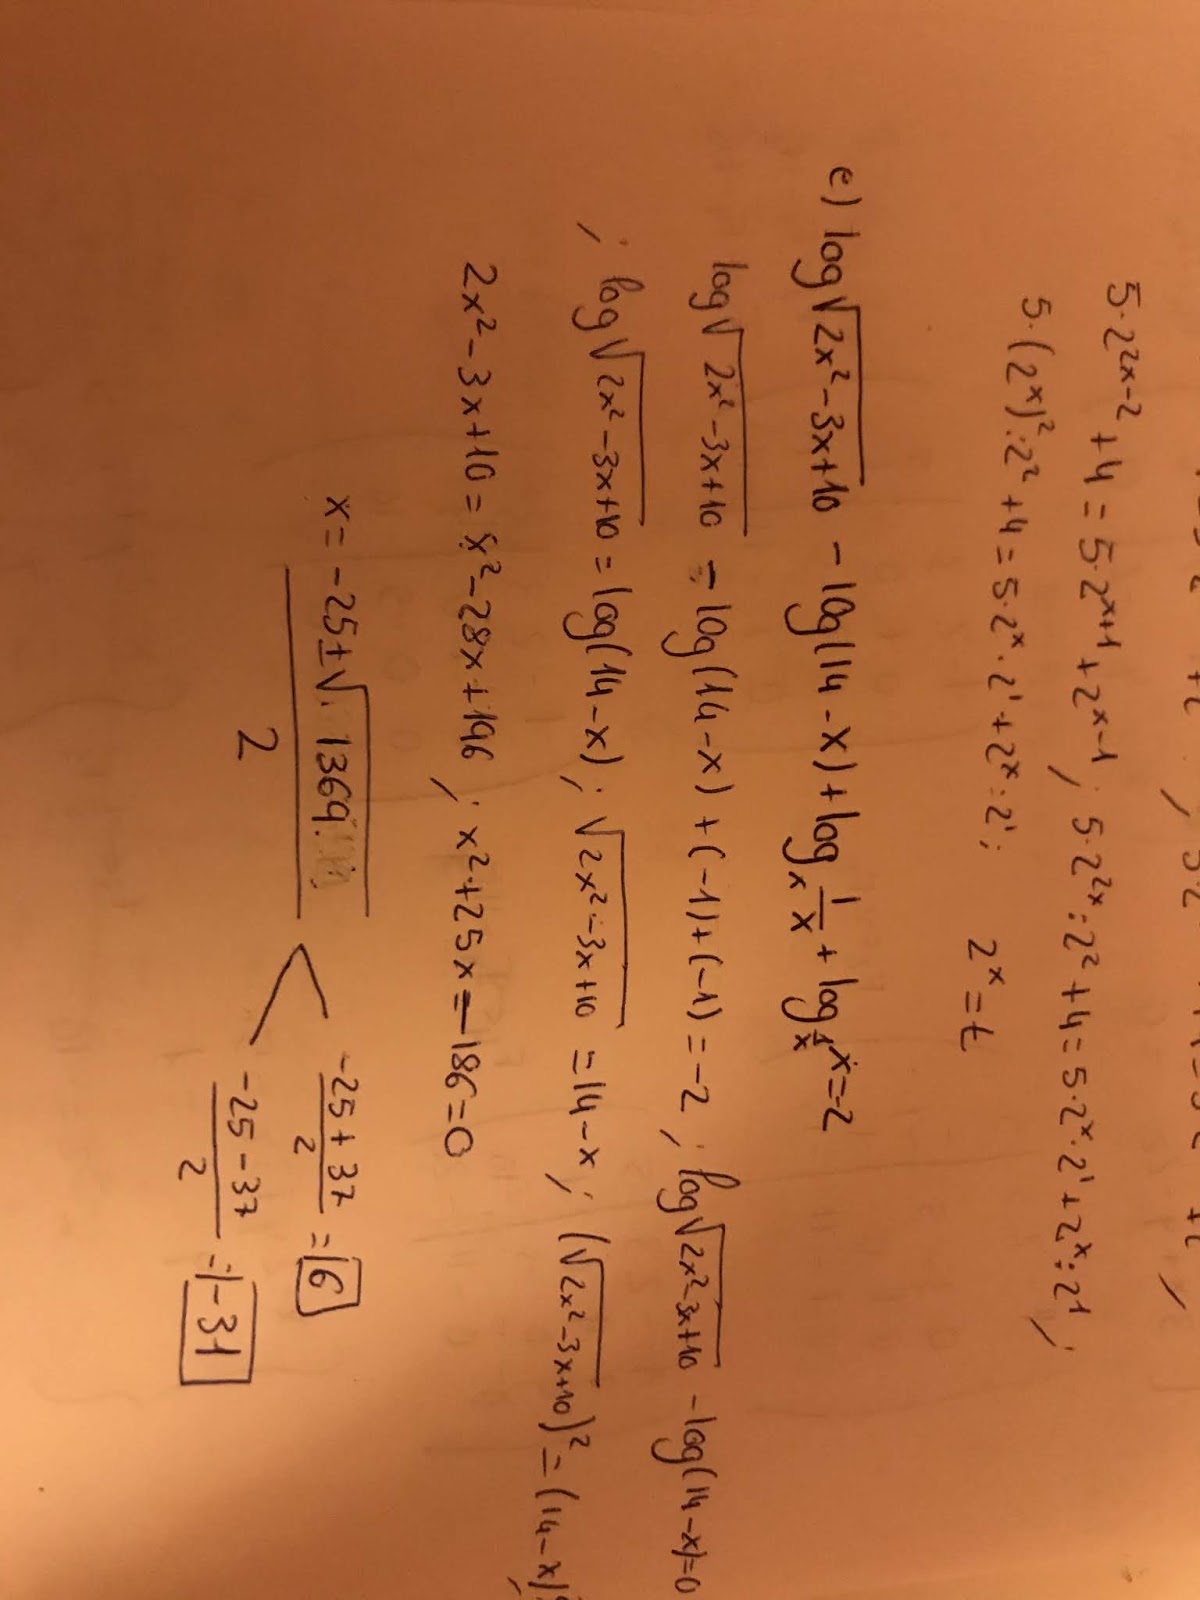 5·2^{2x-2} + 4 = 5·2^{x+1} + 2^{x-1} ; 5·2^{2x}:2^2 + 4 = 5·2^x·2^1 + 2^x:2^1 ;
5·(2^x)^2:2^2 + 4 = 5·2^x·2^1 + 2^x:2^1 ; 2^x = t
e) log√(2x²-3x+10) - log(14-x) + log_x 1/x + log_{1/x} x = -2
log√(2x²-3x+10) - log(14-x) + (-1) + (-1) = -2 ; log√(2x²-3x+10) - log(14-x) = 0
; log√(2x²-3x+10) = log(14-x) ; √(2x²-3x+10) = 14-x ; (√(2x²-3x+10))² = (14-x)
2x²-3x+10 = x²-28x+196 ; x²+25x-186=0
x = (-25±√1369)/2 < (-25+37)/2 = 6
(-25-37)/2 = -31